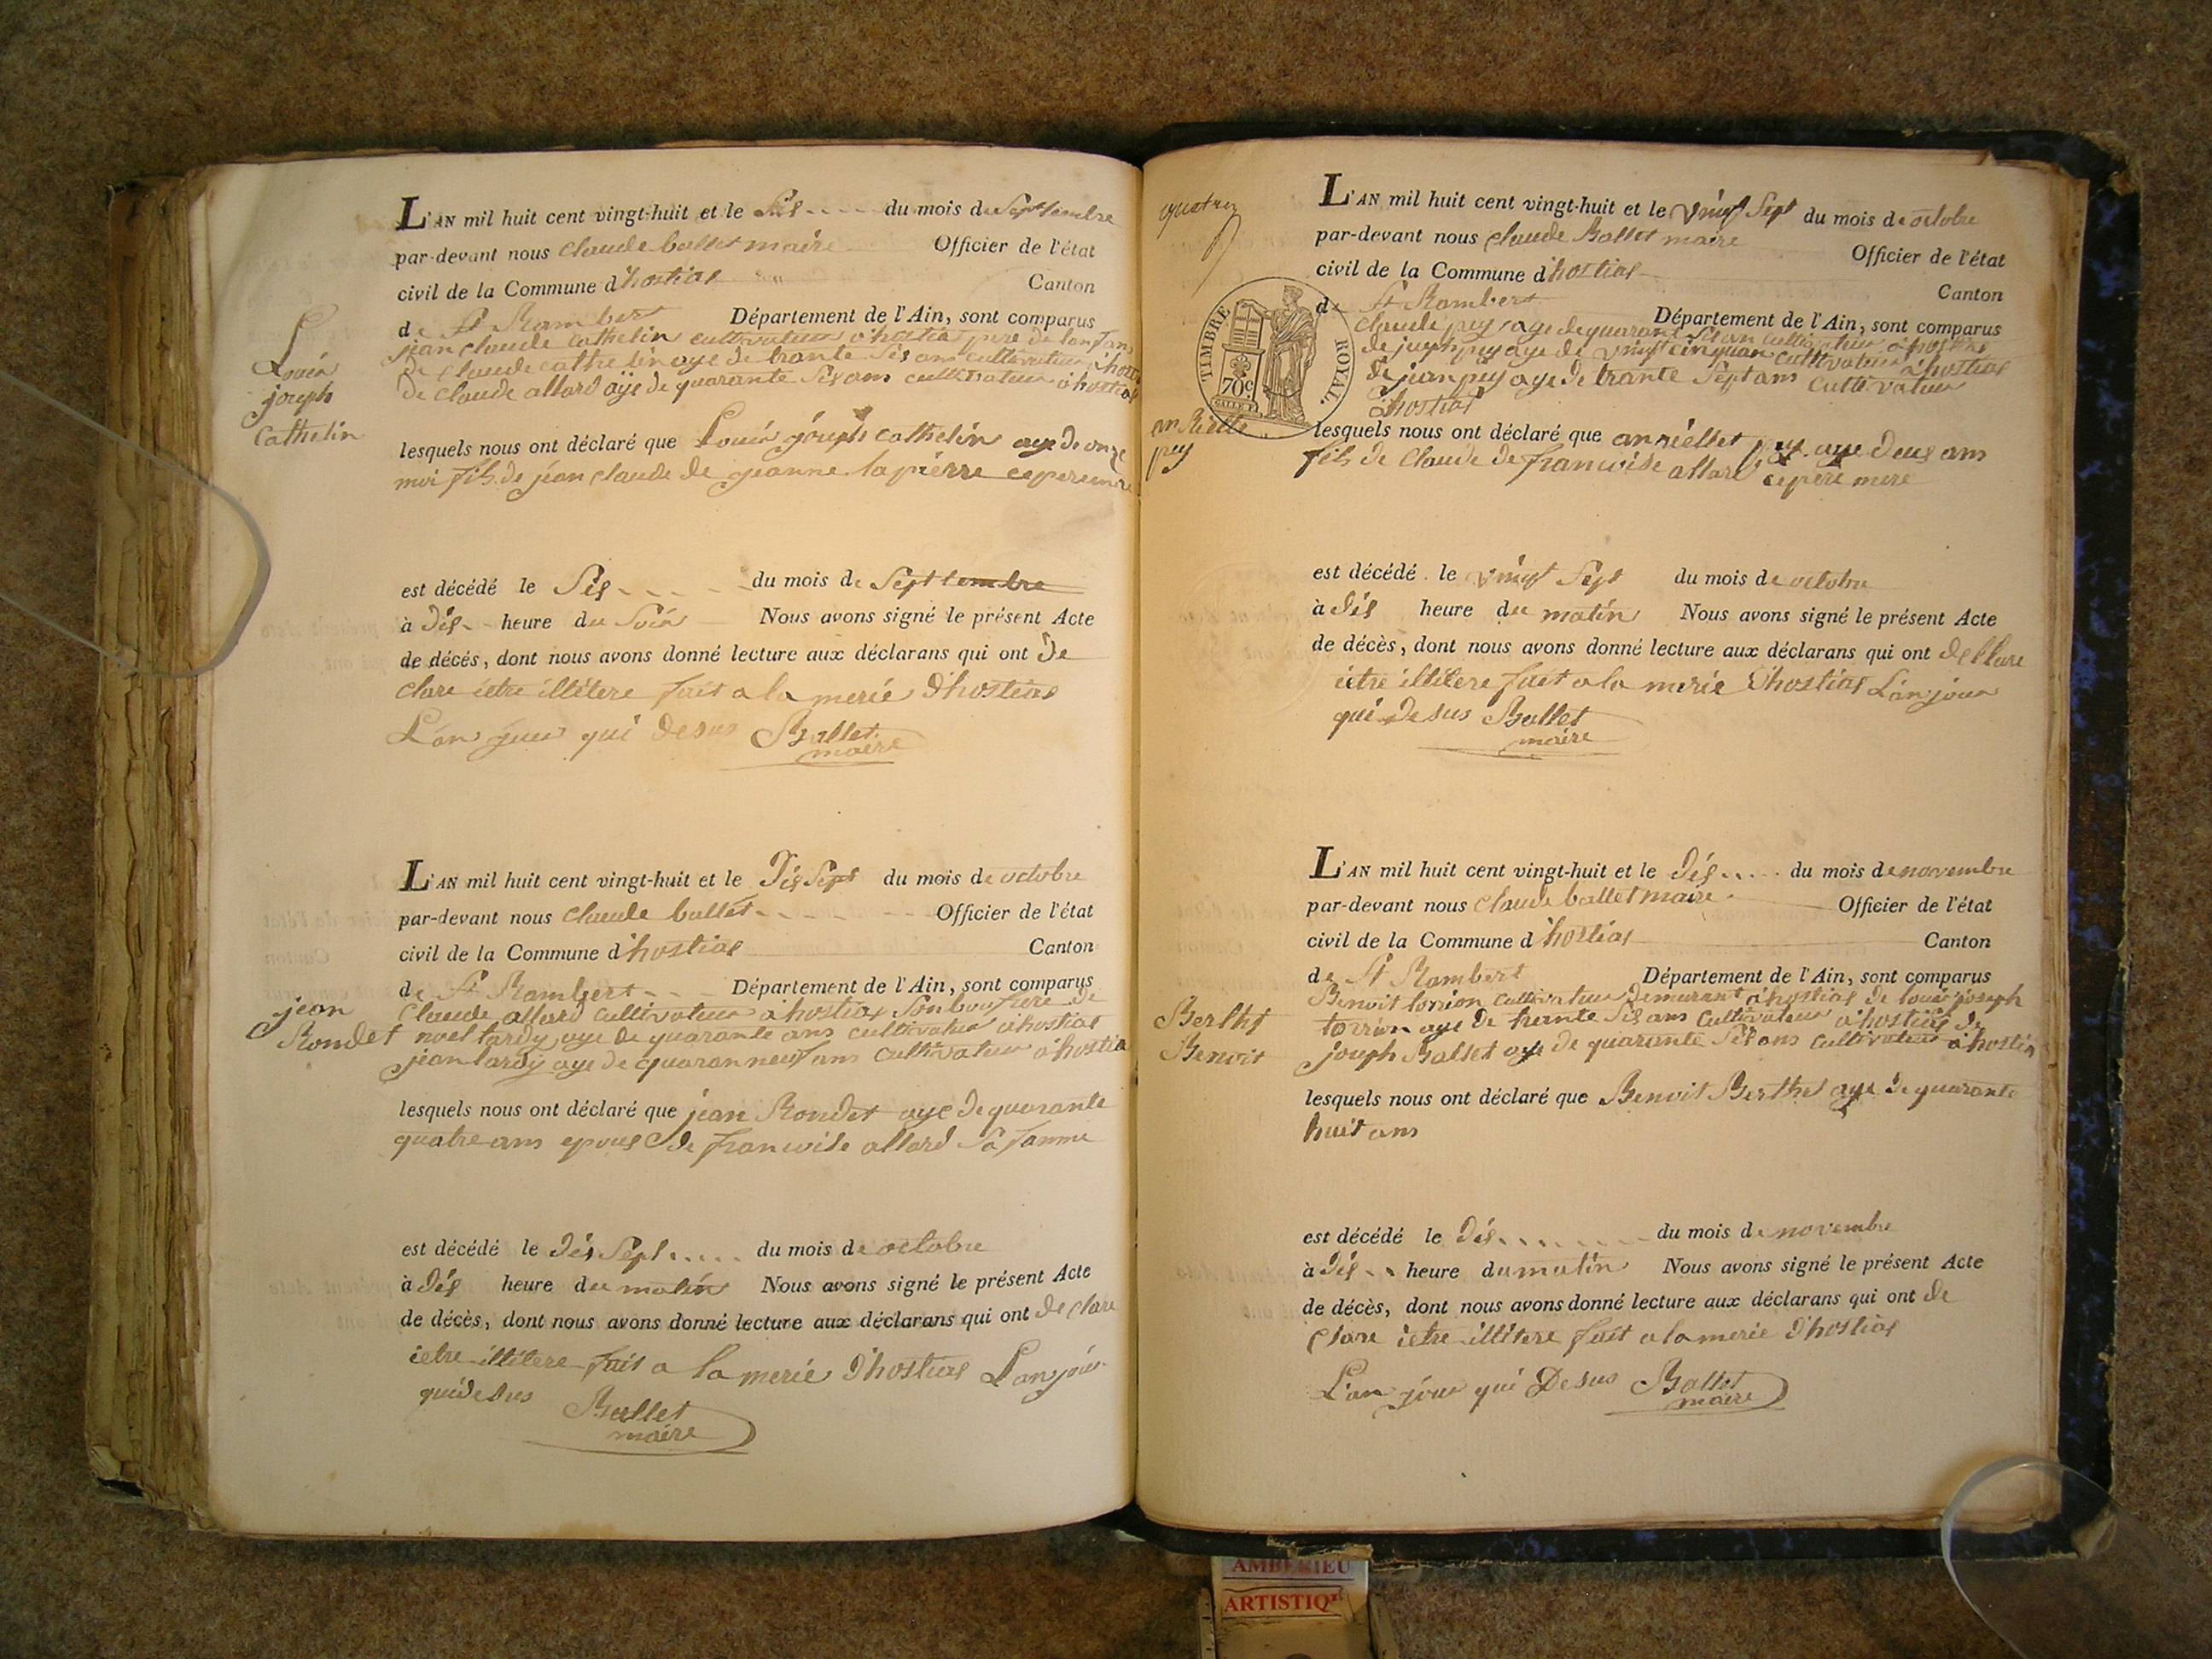 L'AN mil huit cent vingt-huit et le Sis du mois du Septembre
par-devant nous Claude ballet maire Officier de l'état
civil de la Commune d'hostias Canton
de St Rambert Département de l'Ain, sont comparus
jean claude Cathelin cultivateur a hostia pere de lanfan
de Claude cathelin aye de trante Sis ans cultivateur a hostia
de Claude allard aÿe de quarante Sis ans cultivateur a hostias
Louis
joseph
Cathelin
lesquels nous ont déclaré que Louis joseph cathelin aye de onze
moi fils de jéan claude de jeanne lapierre ce pere mere
est décédé le Sis du mois de Septtembre
à Dis heure du Soir Nous avons signé le présent Acte
de décés, dont nous avons donné lecture aux déclarans qui ont de
clare ietre illitere fait a la merie d'hostias
L'an jour qui desus Ballet
maire
L'AN mil huit cent vingt-huit et le Dis Sept du mois de octobre
par-devant nous Claude ballet Officier de l'état
civil de la Commune d'hostias Canton
de St Rambert Département de l'Ain, sont comparus
Claude allard cultivateur a hostias Son boufrere de
jean
Rondet
noel tardy aye de quarante ans cultivateur a hostias
jean tardy aye de quaran neuf ans cultivateur a hostia
lesquels nous ont déclaré que jean Rondet aye de quarante
quatre ans epous de francoise allard Sa famme
est décédé le dis Sept du mois de octobre
à Dis heure du matin Nous avons signé le présent Acte
de décès, dont nous avons donné lecture aux déclarans qui ont de clare
ietre illitere fait a la merie d'hostias L'an jour
qui desus Ballet
maire
L'AN mil huit cent vingt-huit et le vingt Sept du mois de octobre
par-devant nous Claude Ballet maire Officier de l'état
civil de la Commune d'hostias Canton
de St Rambert Département de l'Ain, sont comparus
TIMBRE ROYAL.
70c
Claude pey aye de quarant Sis an cultivateur a hostias
de joseph pey aye de vingt cinq uan cultivateur a hostias
de jean pey aye de trante Sept ans cultivateur
a hostias
pey
lesquels nous ont déclaré que pey aye deus ans
fils de Claude de francoise allard ce pere mere
est décédé le vingt Sept du mois de octobre
à Dis heure du matin Nous avons signé le présent Acte
de décès, dont nous avons donné lecture aux déclarans qui ont declare
ietre illitere fait a la merie d'hostias L'an jour
qui desus Ballet
maire
L'AN mil huit cent vingt-huit et le Dis du mois de novembre
par-devant nous Claude ballet maire Officier de l'état
civil de la Commune d'hostias Canton
de St Rambert Département de l'Ain, sont comparus
Benoit torrion cultivateur demurant a hostias de louis joseph
torrion aye de trante Sis ans cultivateur a hostias de
joseph Ballet aye de quarante Sis ans cultivateur a hostia
Berthet
Benoit
lesquels nous ont déclaré que Benoit Berthet aye de quarante
huit ans
est décédé le Dis du mois de novembre
à Dis heure du matin Nous avons signé le présent Acte
de décès, dont nous avons donné lecture aux déclarans qui ont de
clare ietre illitere fait a la merie d'hostias
L'an jour qui Desus Ballet
maire
AMBERIEU
ARTISTIQ